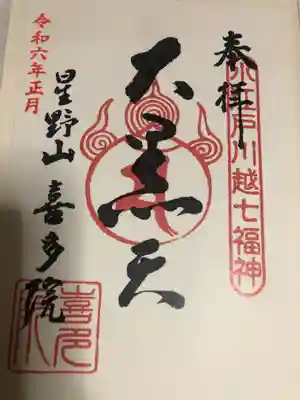 奉拝
小江戸川越七福神
大黒天
令和六年正月
星野山 喜多院